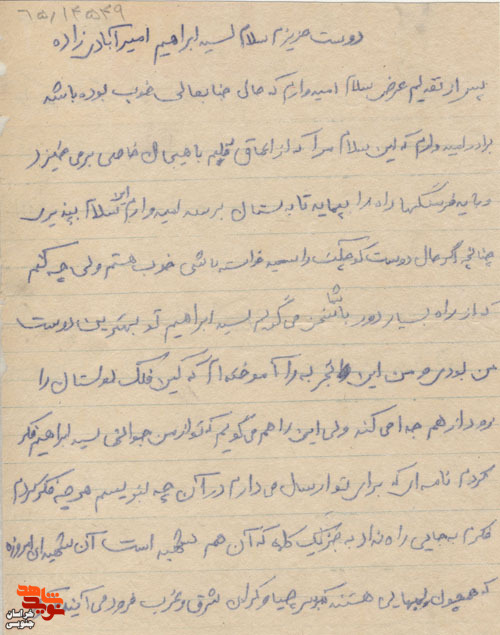 ۶۵/۱۴۵۴۹
دوست عزیزم سلام سید ابراهیم امیرآبادی زاده
پس از تقدیم عرض سلام امیدوارم که حال جنابعالی خوب بوده باشد
برادر امیدوارم که این سلام مرا که از اعماق قلبم با هیجان خاصی برمی خیزد
و باید فرسنگها راه را بپیماید تا بدستان برسد امیدوارم این سلام بپذیری
چنانچه اگر حال دوست کوچکت را خواسته باشی خوب هستم ولی چه کنم
که از راه بسیار دور با شما سخن می گویم سید ابراهیم تو بهترین دوست
من بودی و من این تجربه را آموخته‌ام که این فلک دوستان را
زود از هم جدا می کند ولی این را هم می گویم که تو از من جوانتر سید ابراهیم فکر
کردم نامه ای که برای تو ارسال می دارم در آن چه بنویسم هر چه فکر کردم
فکرم به جایی راه نداد به جز یک کلمه که آن هم شهید است آن شهیدان امروزه
که همچون هستند که بر شرق و غرب فرود می آیند
شاهد
نوید
خراسان
جنوبی